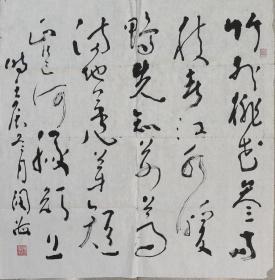 竹外桃花三两
枝春江水暖
鸭先知蒌蒿
满地芦芽短
正是河豚欲上
时壬辰冬月